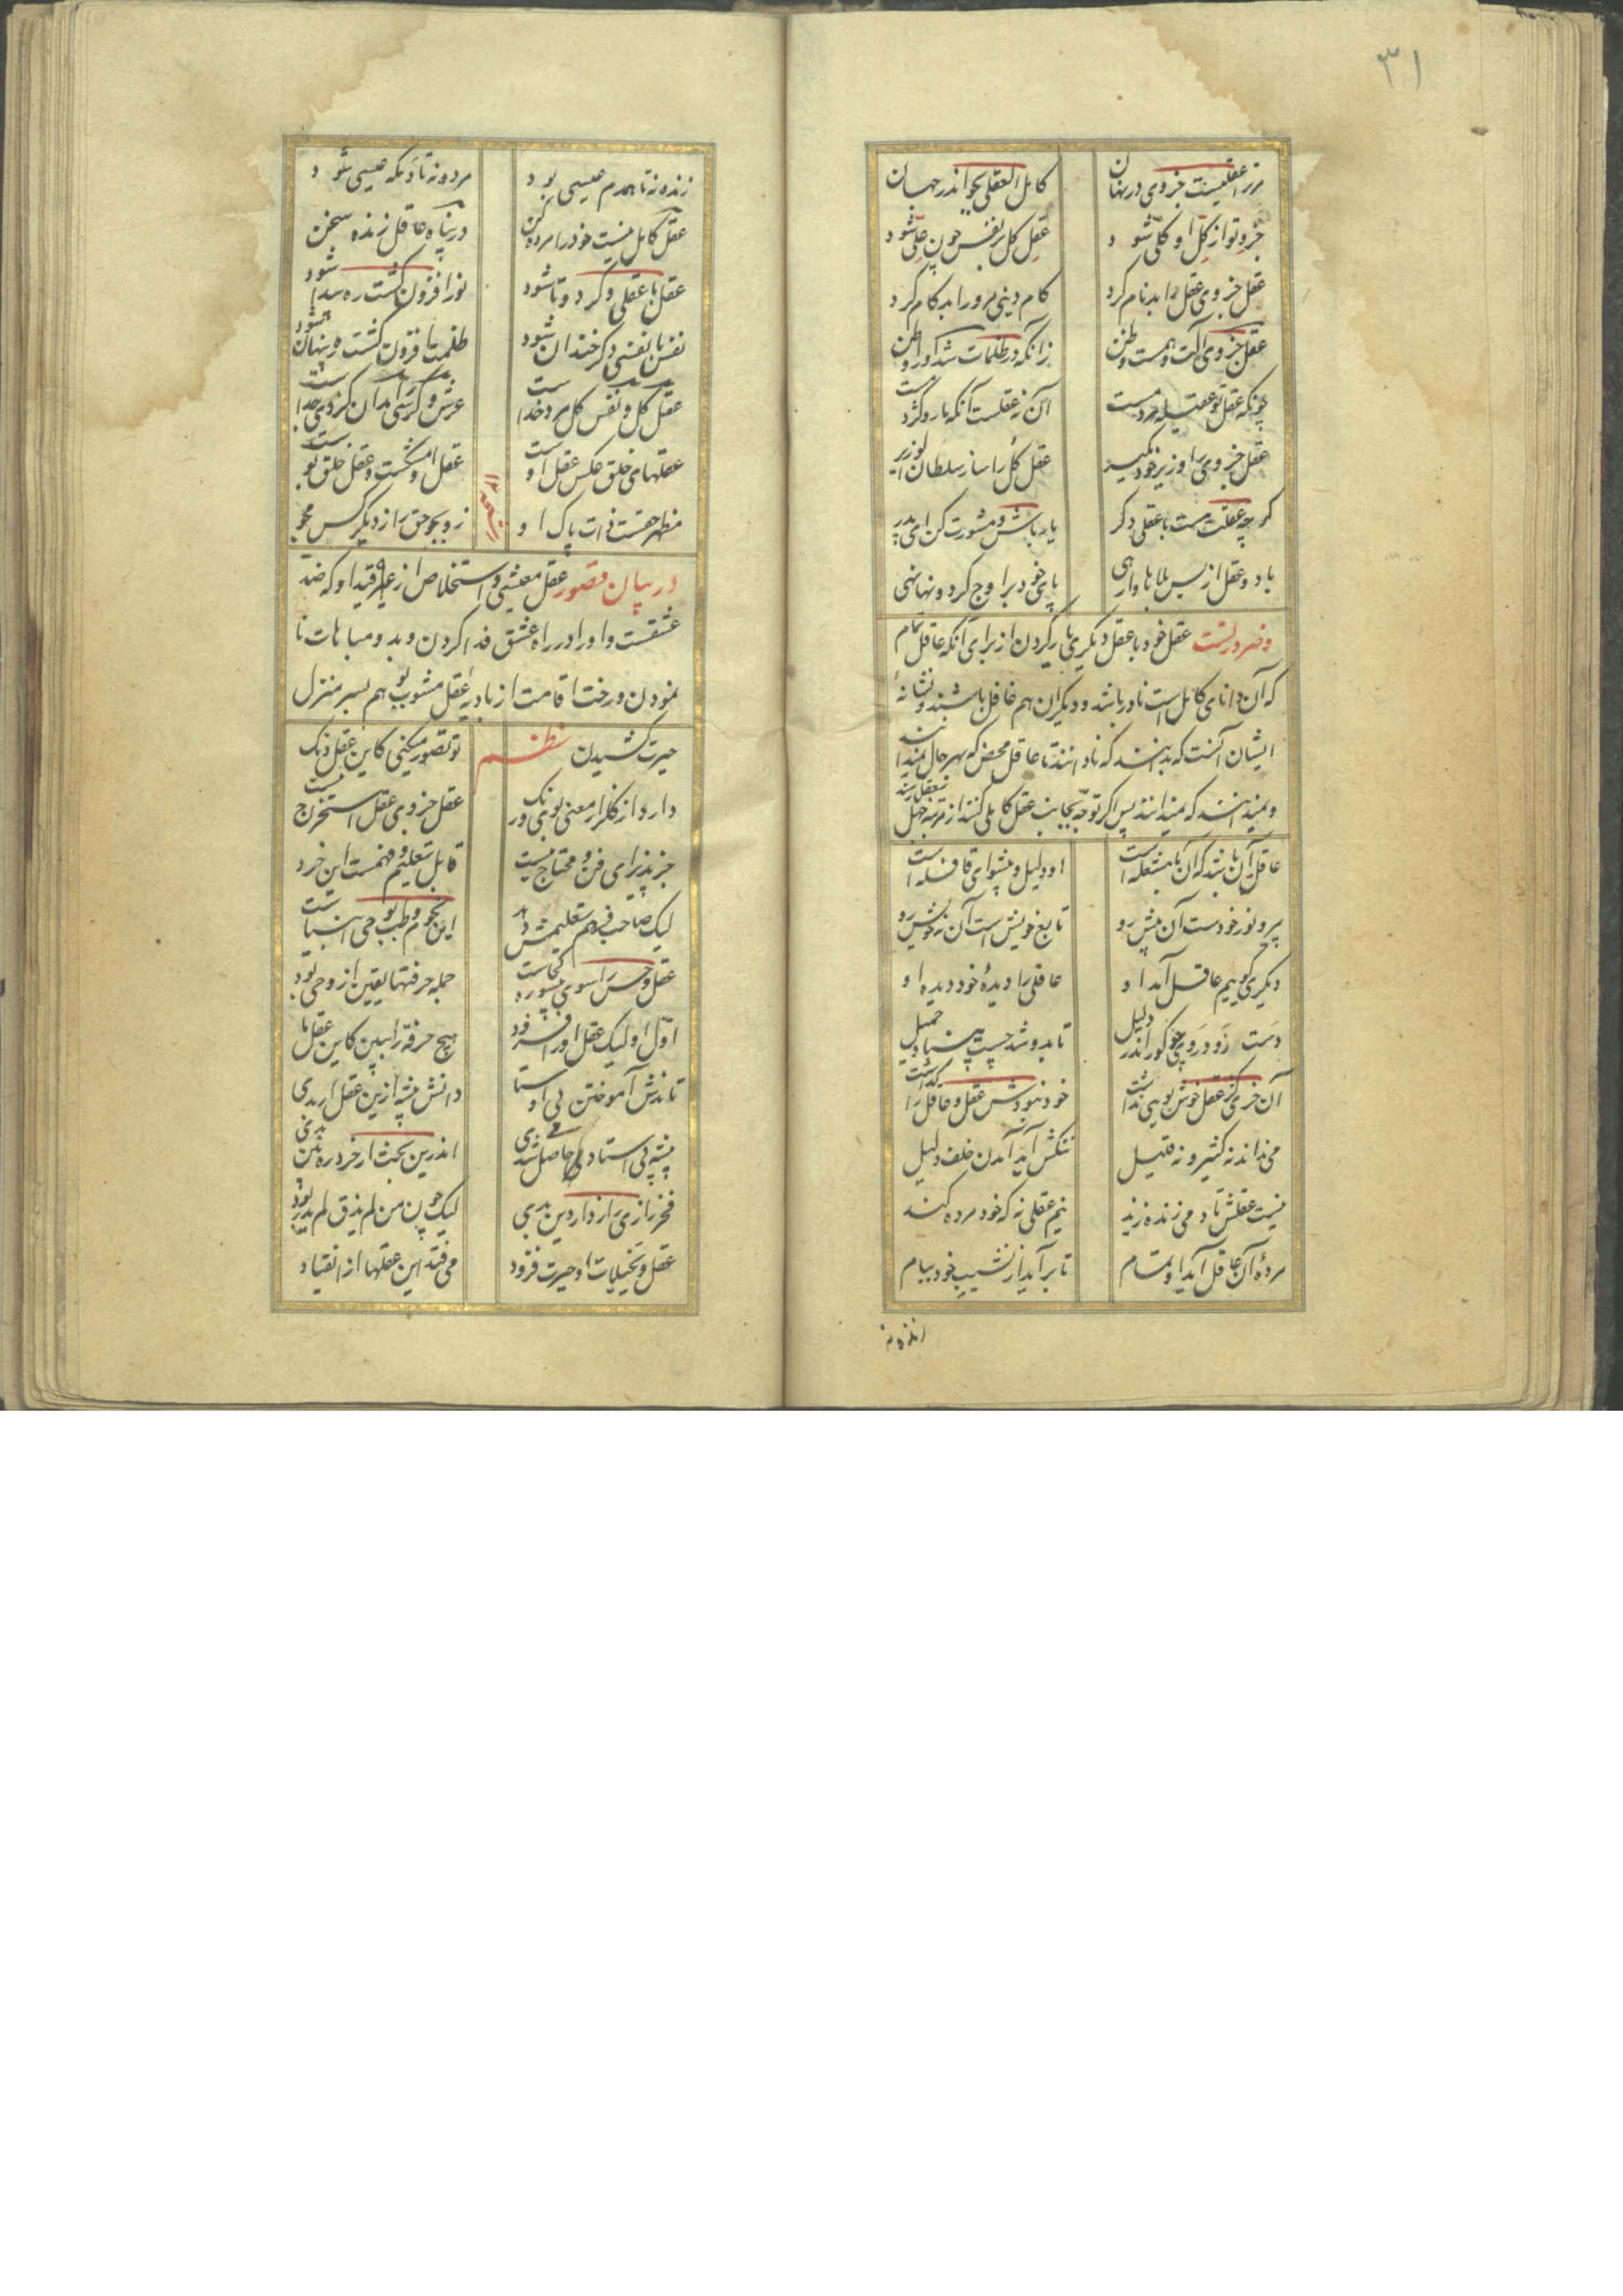 ۳۱
مر ترا عقلیست جزوی در نهان
کامل العقلی بجو اندر جهان
جزو تو از کل او کلی شود
عقل کل بر نفس چون غلی شود
عقل جزوی عقل را بدنام کرد
کام دنیی مرو را بدکام کرد
عقل جزوی آفتش وهمست و ظن
زانکه در ظلمات شد او را وطن
چونکه عقل تو عقیله مردمست
آن نه عقلست آنکه مار و کژدمست
عقل جزوی را وزیر خود مگیر
عقل کل را ساز سلطان ای وزیر
گر چه عقلت هست با عقلی دگر
یار باش و مشورت کن ای پدر
با دو عقل از بس بلاها وارهی
پای خود بر اوج گردونها نهی
و ضرورتست عقل خود با عقل دیگری یار کردن از برای آنکه عاقل تمام
که آن دانای کامل است نادر باشد و دیگران هم غافل باشند و نشانهٔ
ایشان آنست که بدانند که نادانند تا عاقل محض که بهر حال
و نمیدانند که نمیدانند پس اگر توجه بجانب عقل کاملی کنند از مرتبه جهل بتعقل رسند
عاقل آن باشد که آن با مشعله است
او دلیل و پیشوای قافله است
پیرو نور خودست آن پیش رو
تابع خویش است آن بیخویش رو
دیگری کو نیم عاقل آمد او
عاقلی را دیدهٔ خود دیده او
دست زو در وی چو کور اندر دلیل
تا بدو شد چست و بینا و جمیل
آن خری کز عقل خوش بویی نداشت
خود نبودش عقل و عاقل را گذاشت
می نداند نه کثیر و نه قلیل
ننگش آید آمدن خلف دلیل
نیست عقلش تا دمی زنده زید
نیم عقلی نه که خود مرده کند
مردهٔ آن عاقل آید او تمام
تا برآید از نشیب خود ببام
زنده نه تا همدم عیسی بود
مرده نه تا دمگه عیسی شود
عقل کامل نیست خود را مرده کن
در پناه عاقل زنده سخن
عقل با عقلی دگر دوتا شود
نور افزون گشت ره پیدا شود
نفس با نفسی دگر خندان شود
ظلمت افزون گشت ره پنهان شود
عقل کل و نفس کل مرد خداست
عرش و کرسی مدان کز وی جداست
عقلهای خلق عکس عقل اوست
عقل او مشکست و عقل خلق بوست
مظهر حقست ذات پاک او
زو بجو حق را از دیگر کس مجو
در بیان قصور عقل معیشی و استخلاص از قید او که ضد
عشقست و او را در راه عشق فدا کردن و بدو مباهات نا
نمودن و رخت اقامت از بادیهٔ عقل مشوب بوهم بسر منزل
حیرت کشیدن نظم
تو تصور میکنی کاین عقل دنگ
دارد از گلزار معنی بوی و رنگ
عقل جزوی عقل استخراج نیست
جز پذیرای فن و محتاج نیست
قابل تعلیم و فهمست این خرد
لیک صاحب فهم تعلیمش دهد
این نجوم و طب وحی انبیاست
عقل و حس را سوی بیسو ره کجاست
جمله حرفتها یقین از وحی بود
اول او لیک عقل او را فزود
هیچ حرفة را ببین کاین عقل ما
تاندش آموختن بی اوستا
دانش پیشه ازین عقل ار بدی
پیشه بی استاد کی حاصل شدی
اندرین بحث ار خرد ره بین بدی
فخر رازی رازدار دین بدی
لیک چون من لم یذق لم یدر بود
عقل و تخییلات او حیرت فزود
می فتد این عقلها از انقیاد